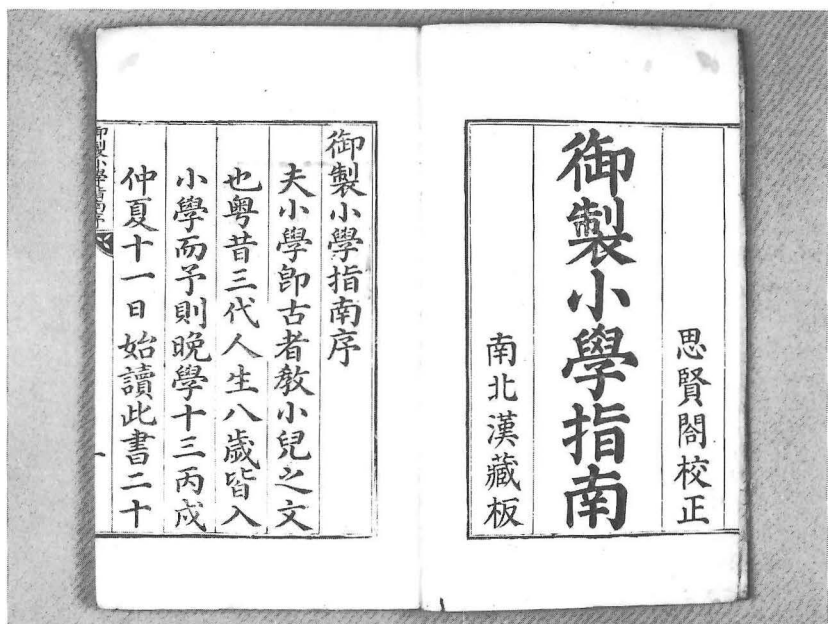 思賢閤校正
御製小學指南
南北漢藏板
御製小學指南序
夫小學卽古者敎小兒之文
也粤昔三代人生八歲皆入
小學而予則晩學十三丙戌
仲夏十一日始讀此書二十
御製小學指南序
一